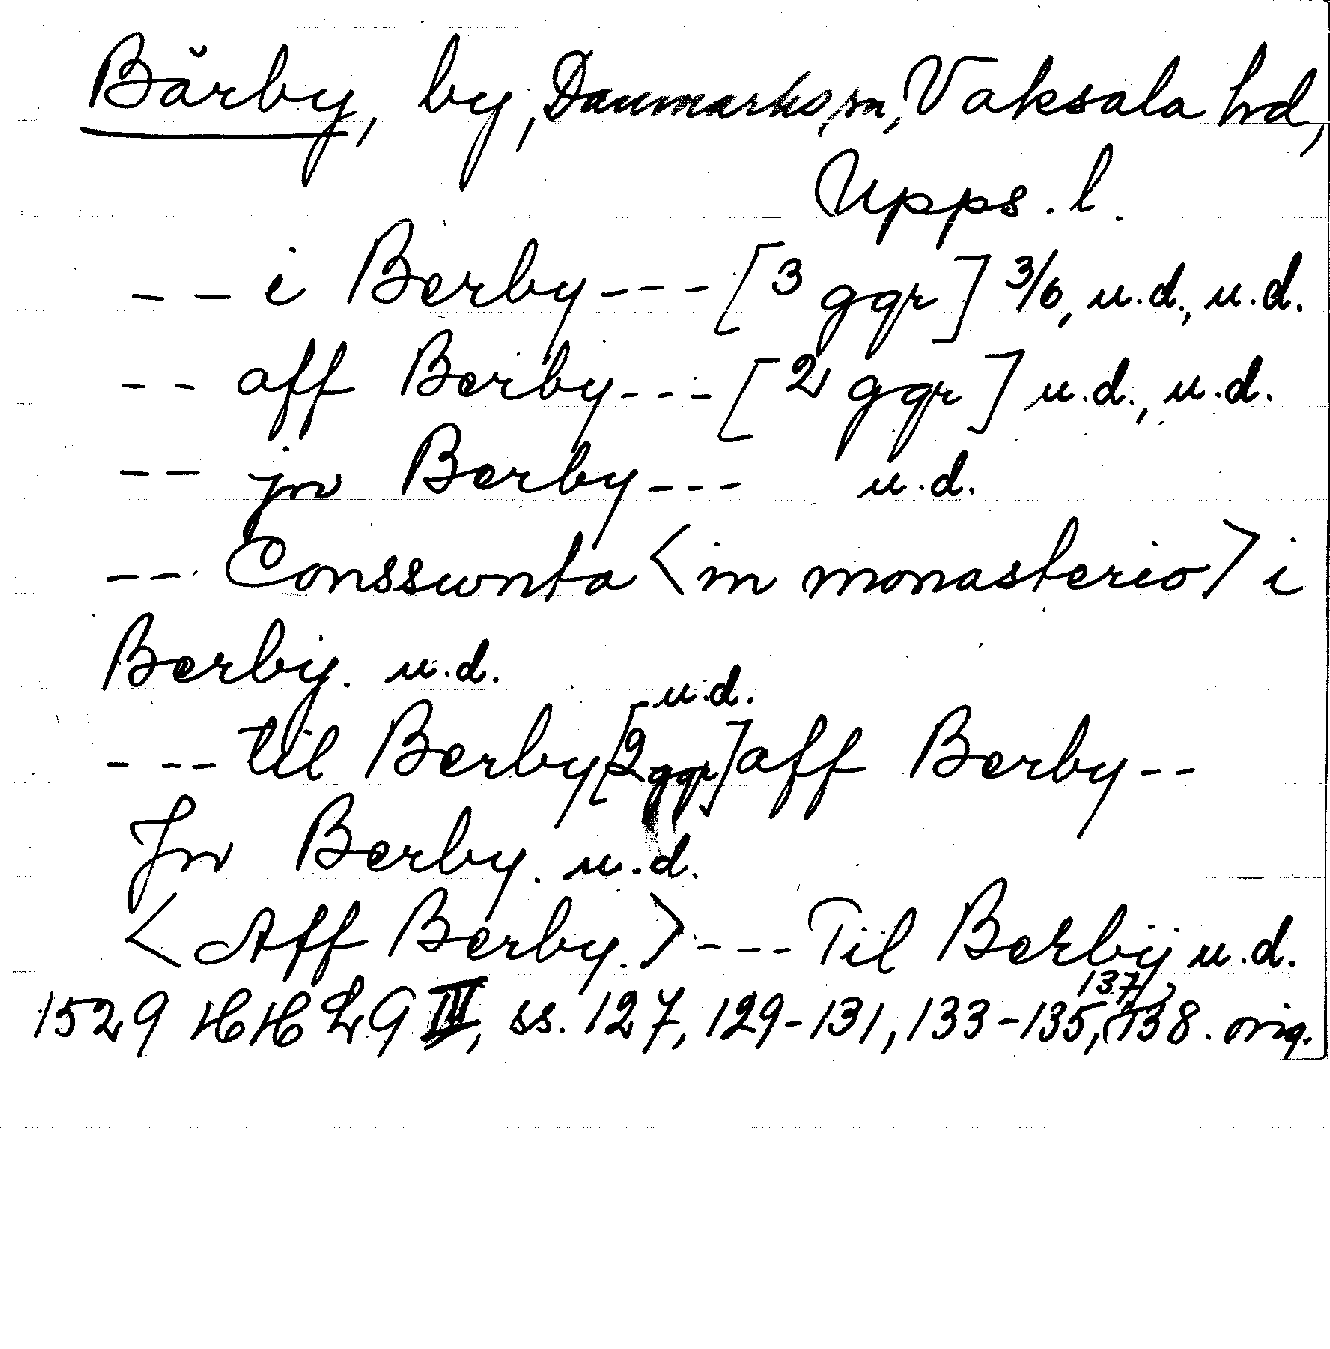 Bärby, by, Danmarks sn, Vaksala hd,
Upps. l.
-- i Berby --- [3 ggr] 3/6, u.d., u.d.
-- aff Berby --- [2 ggr] u.d., u.d.
-- jn Berby --- u.d.
-- Consswnta <in monasterio> i
Berby. u.d.
u.d.
--- til Berby [2 ggr] aff Berby --
Jn Berby. u.d.
<Aff Berby.> --- Til Berbÿ u.d.
137,
1529 HH 29 III, ss. 127, 129-131, 133-135, 138. orig.